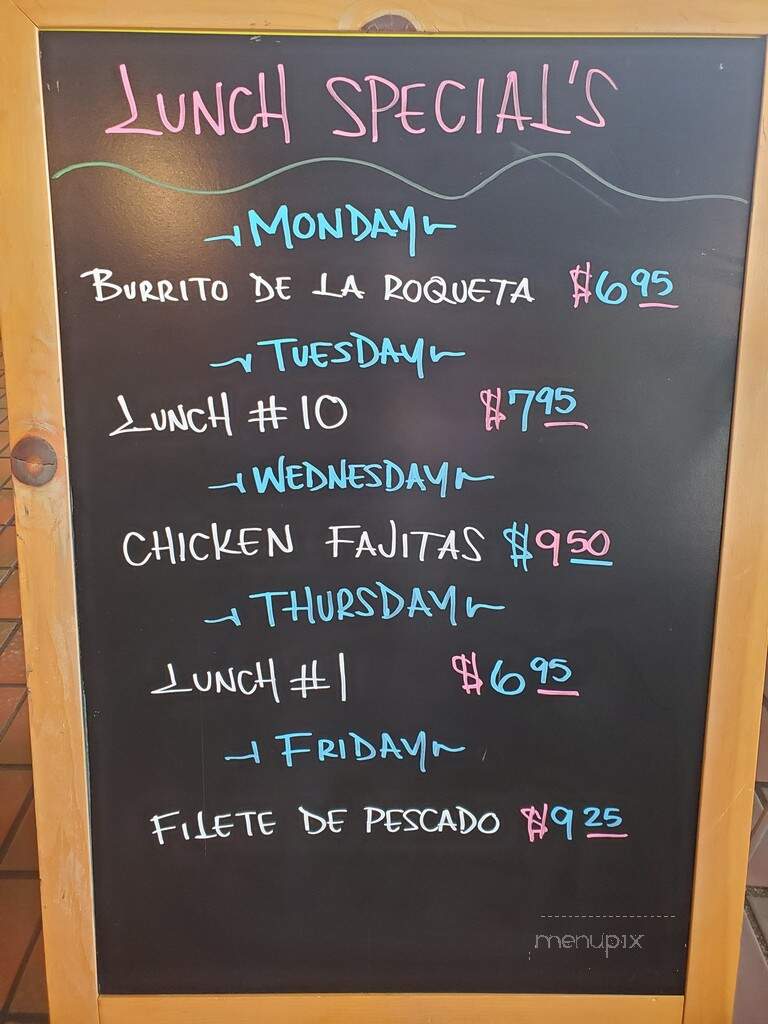 LUNCH SPECIAL'S
MONDAY
BURRITO DE LA ROQUETA $6.95
TUESDAY
LUNCH #10 $7.95
WEDNESDAY
CHICKEN FAJITAS $9.50
THURSDAY
LUNCH #1 $6.95
FRIDAY
FILETE DE PESCADO $9.25
menupix